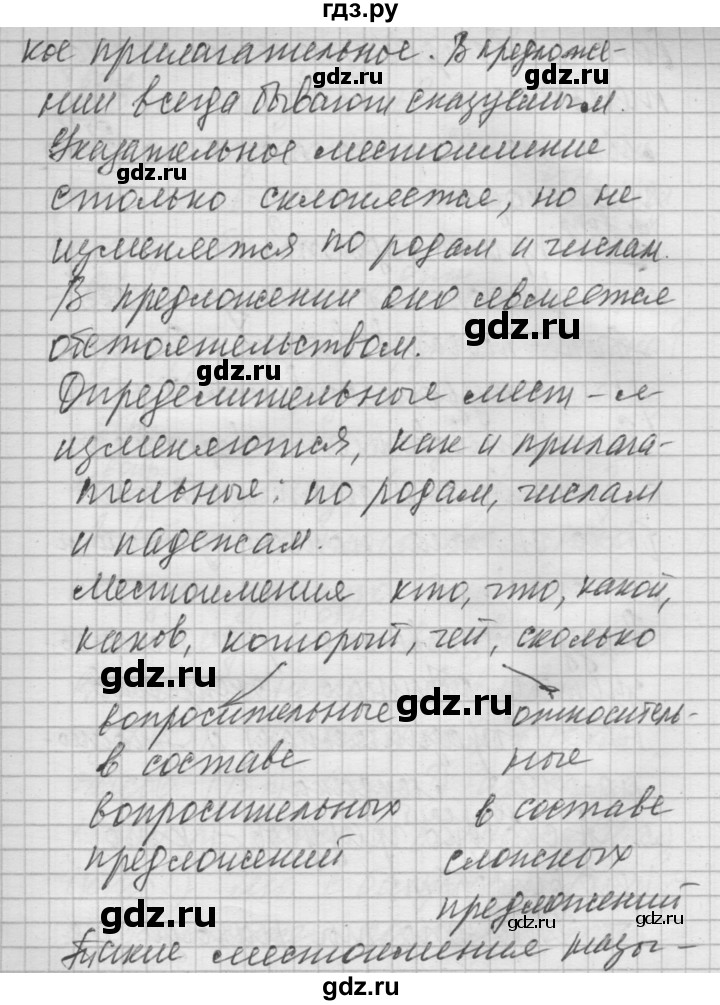 гдз.ру
кое прилагательное. В предложе-
gdz.ru gdz.ru
нии всегда бывают сказуемым.
Указательное местоимение
gdz.ru
столько склоняется, но не
изменяется по родам и числам.
В предложении оно является
gdz.ru
обстоятельством.
gdz.ru
Определительные мест-я
изменяются, как и прилага-
тельные: по родам, числам
gdz.ru gdz.ru
и падежам.
Местоимения кто, что, какой,
каков, который, чей, сколько
gdz.ru
вопросительные относитель-
gdz.ru
в составе ные
вопросительных в составе
предложений сложных
gdz.ru предложений
gdz.ru gdz.ru
Какие местоимения назы-
gdz.ru